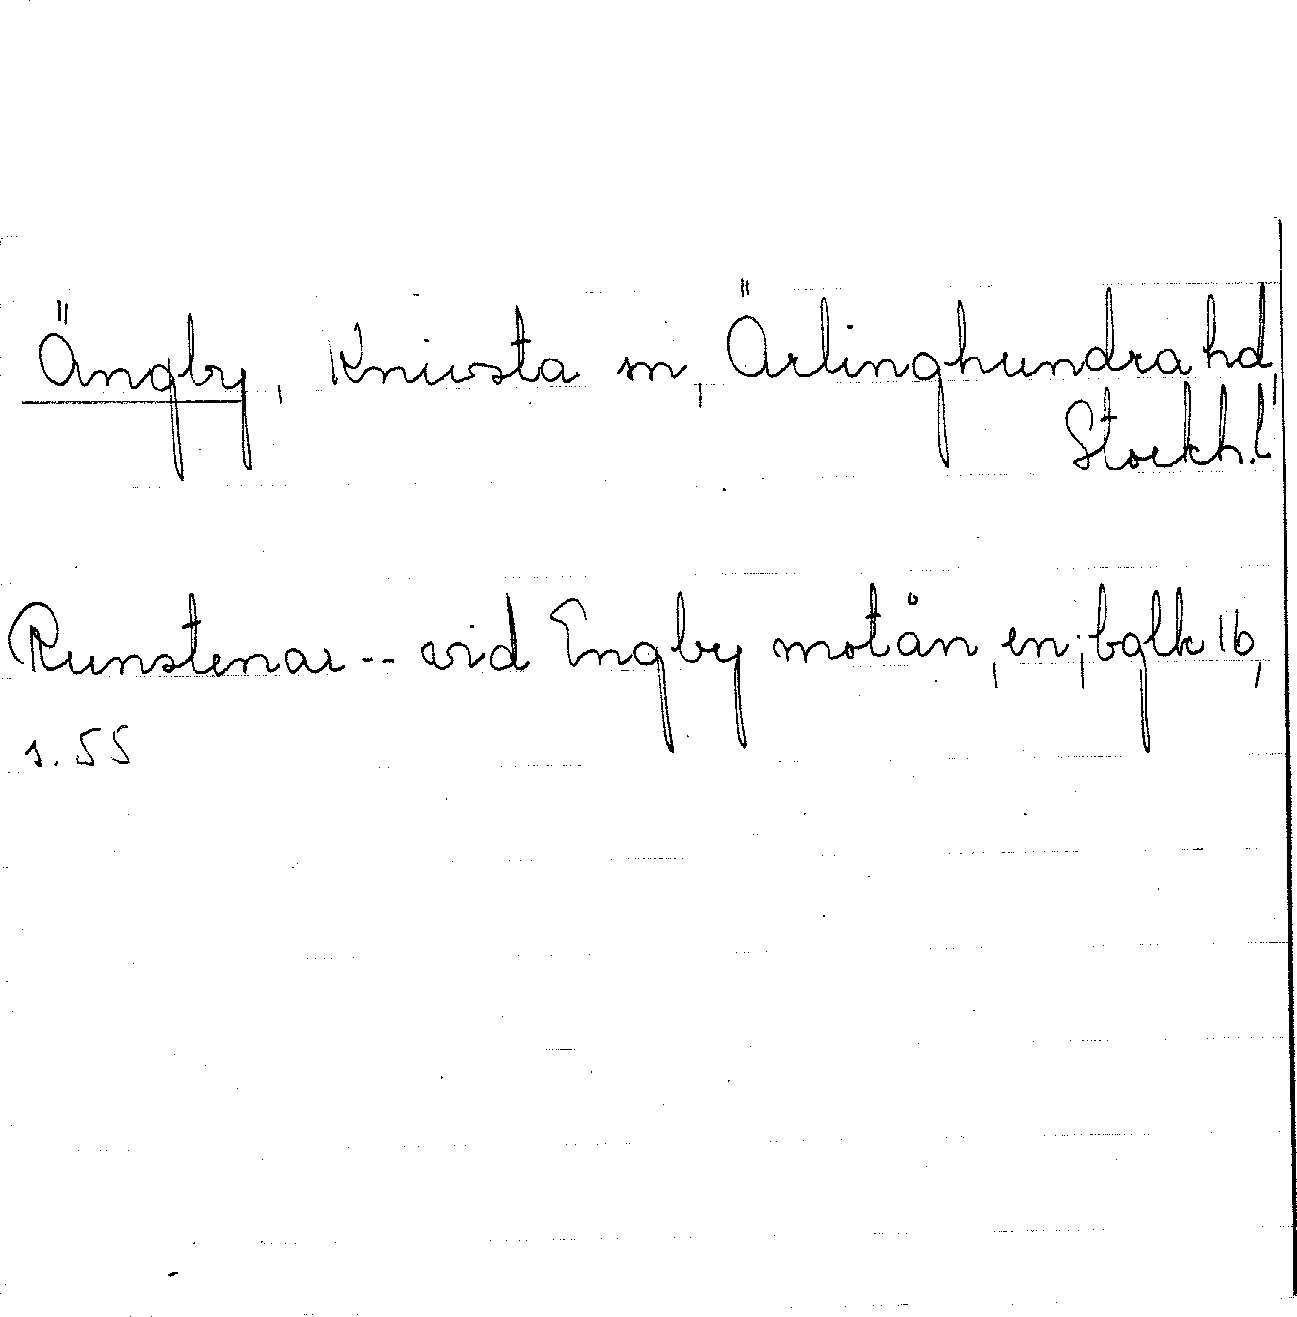 Ängby, Knivsta sn, Ärlinghundra hd,
Stockh. l
Runstenar -- vid Engby mot ån, en; bglk 16,
s. 55